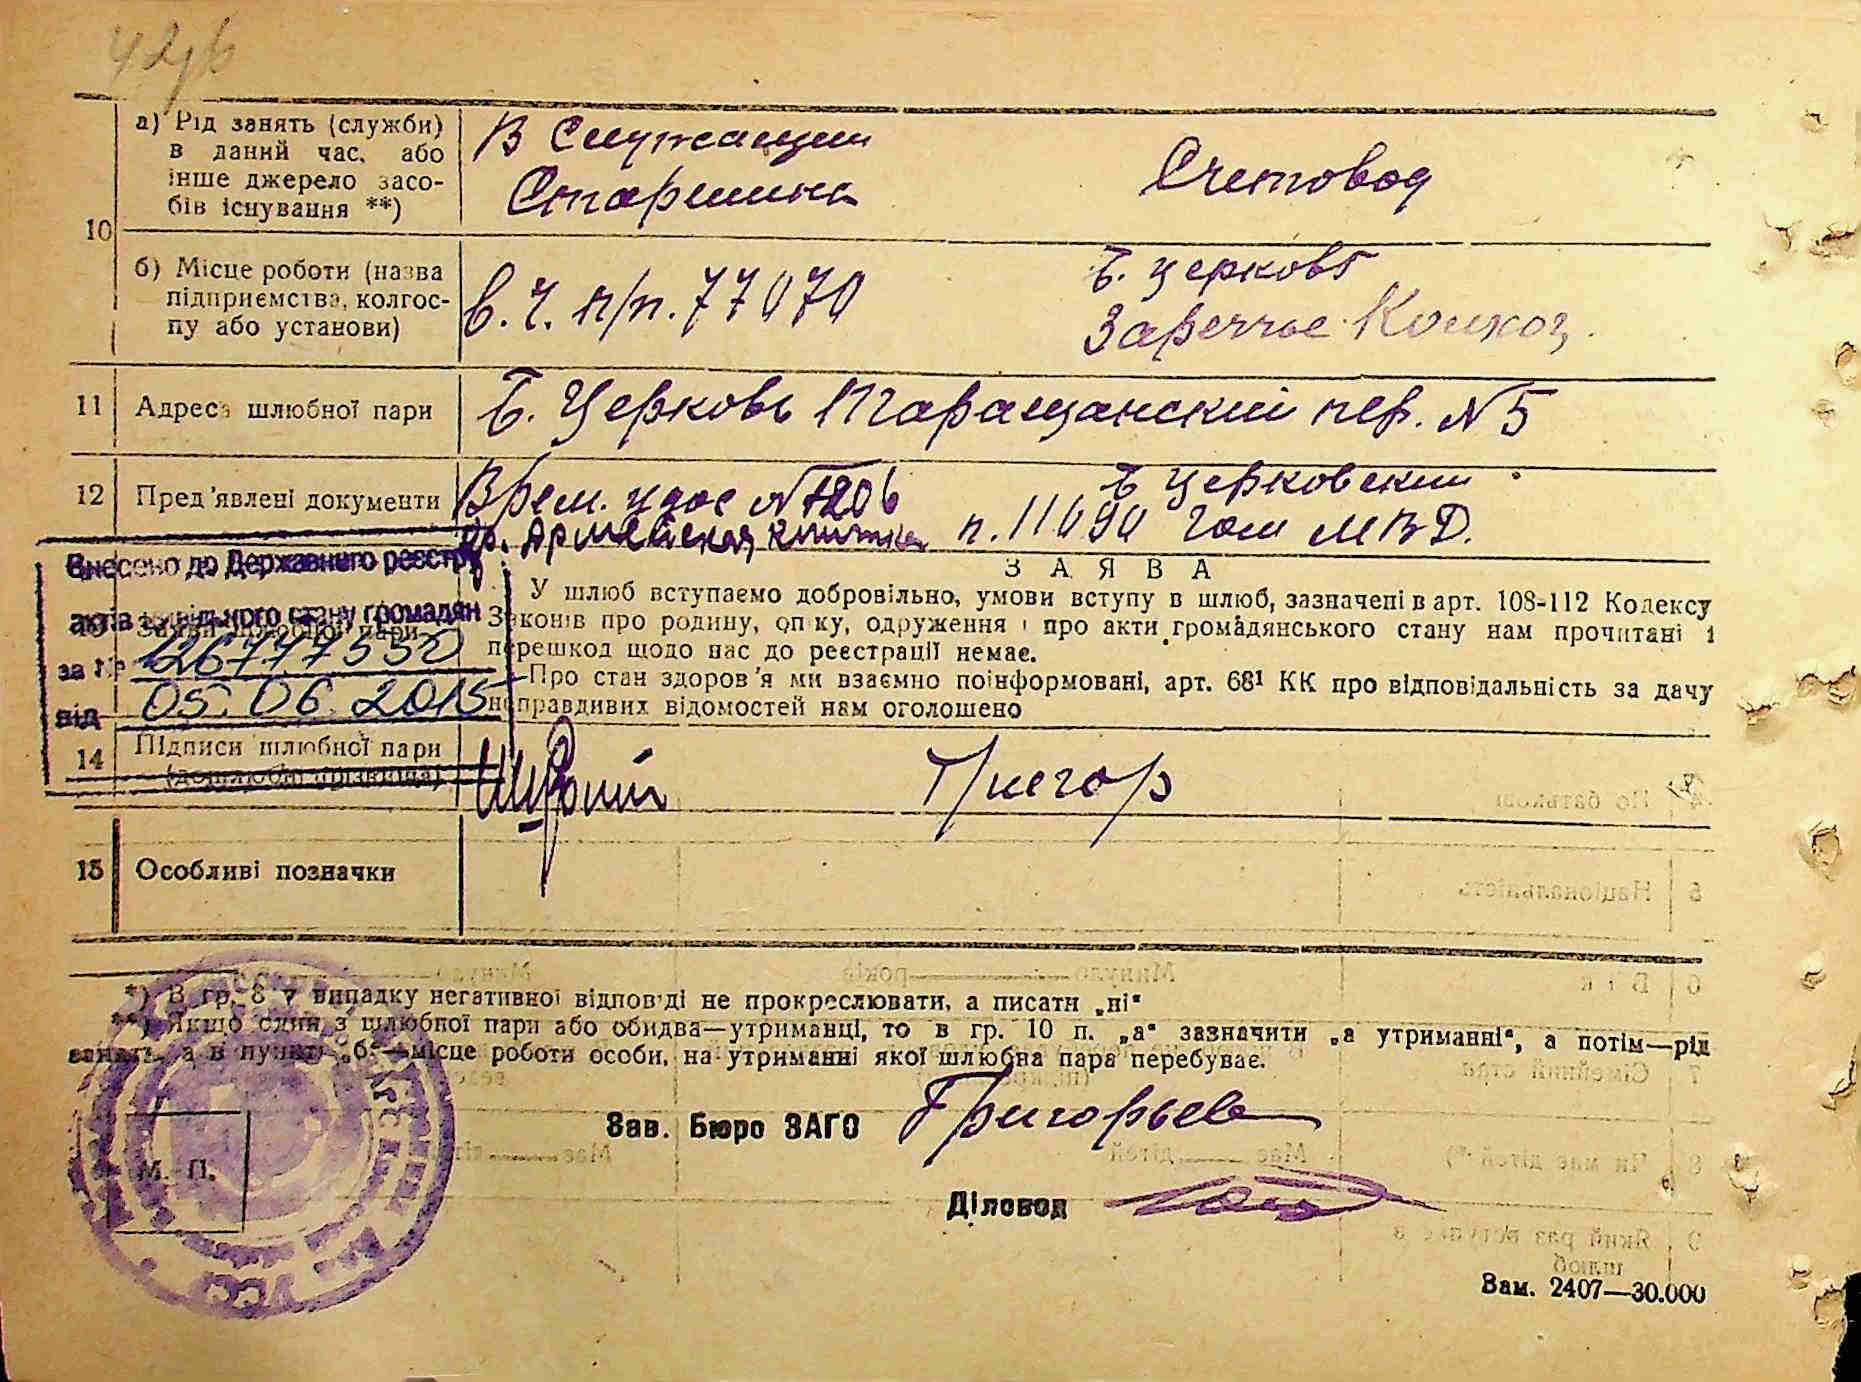 а) Рід занять (служби)
в даний час, або
інше джерело засо-
бів існування **)
В Служащий
Старшина
Счетовод
10
б) Місце роботи (назва
підприємства, колгос-
пу або установи)
в.ч. п/п. 77070
Б. Церковь
Заречье Колхоз.
11 Адреса шлюбної пари
Б. Церковь Таращанский пер. №5
12 Пред'явлені документи
Врем. удос №
Б Церковский
кр. Армейская книжка п. 11090 гом МВД.
Внесено до Державного реєстру
актів цивільного стану громадян
за №
від 05.06.2015
Заяви шлюбної пари
ЗАЯВА
У шлюб вступаємо добровільно, умови вступу в шлюб, зазначені в арт. 108-112 Кодексу
Законів про родину, опіку, одруження і про акти громадянського стану нам прочитані і
перешкод щодо нас до реєстрації немає.
Про стан здоров'я ми взаємно поінформовані, арт. 68¹ КК про відповідальність за дачу
неправдивих відомостей нам оголошено
14 Підписи шлюбної пари
(дошлюбні прізвища)
Григор
15 Особливі позначки
*) В гр. 8 у випадку негативної відповіді не прокреслювати, а писати „ні“
**) Якщо один з шлюбної пари або обидва—утриманці, то в гр. 10 п. „а“ зазначити „а утриманні“, а потім—рід
занять, а в пункті „б“—місце роботи особи, на утриманні якої шлюбна пара перебуває.
Зав. Бюро ЗАГС Григорьев
М. П.
Діловод
Зам. 2407—30.000